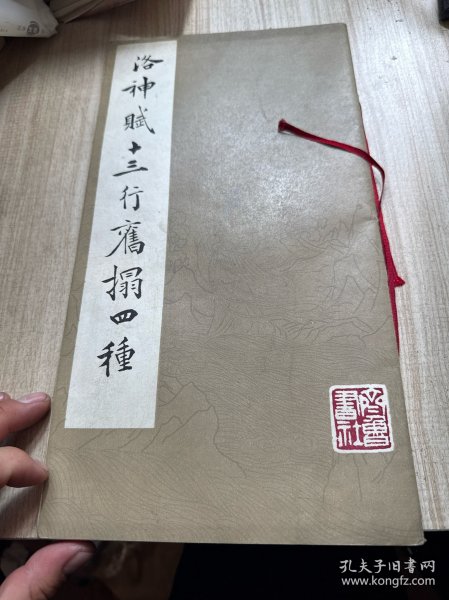 洛神賦十三行舊搨四種
齊魯書社
孔夫子旧书网
www.kongfz.com